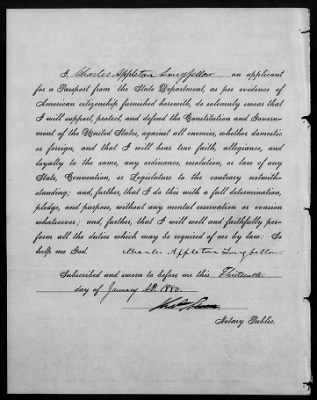 I, Charles Appleton Longfellow an applicant
for a Passport from the State Department, as per evidence of
American citizenship furnished herewith, do solemnly swear that
I will support, protect, and defend the Constitution and Govern-
ment of the United States, against all enemies, whether domestic
or foreign, and that I will bear true faith, allegiance, and
loyalty to the same, any ordinance, resolution, or law of any
State, Convention, or Legislature to the contrary notwith-
standing; and, further, that I do this with a full determination,
pledge, and purpose, without any mental reservation or evasion
whatsoever; and, further, that I will well and faithfully per-
form all the duties which may be required of me by law: So
help me God. Charles Appleton Longfellow.
Subscribed and sworn to before me this Thirteenth
day of January 1880.
Notary Public.